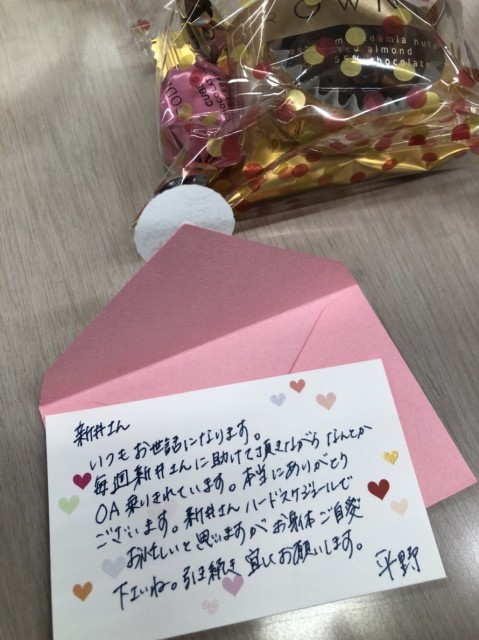 OWN
macadamia nuts
almond
55% chocolate
CUBE
CHOCOLAT
新井さん
いつもお世話になります。
毎週新井さんに助けて頂きながらなんとか
OA乗りきれています。本当にありがとう
ございます。新井さんハードスケジュールで
お忙しいと思いますがお身体ご自愛
下さいね。引き続き宜しくお願いします。
平野